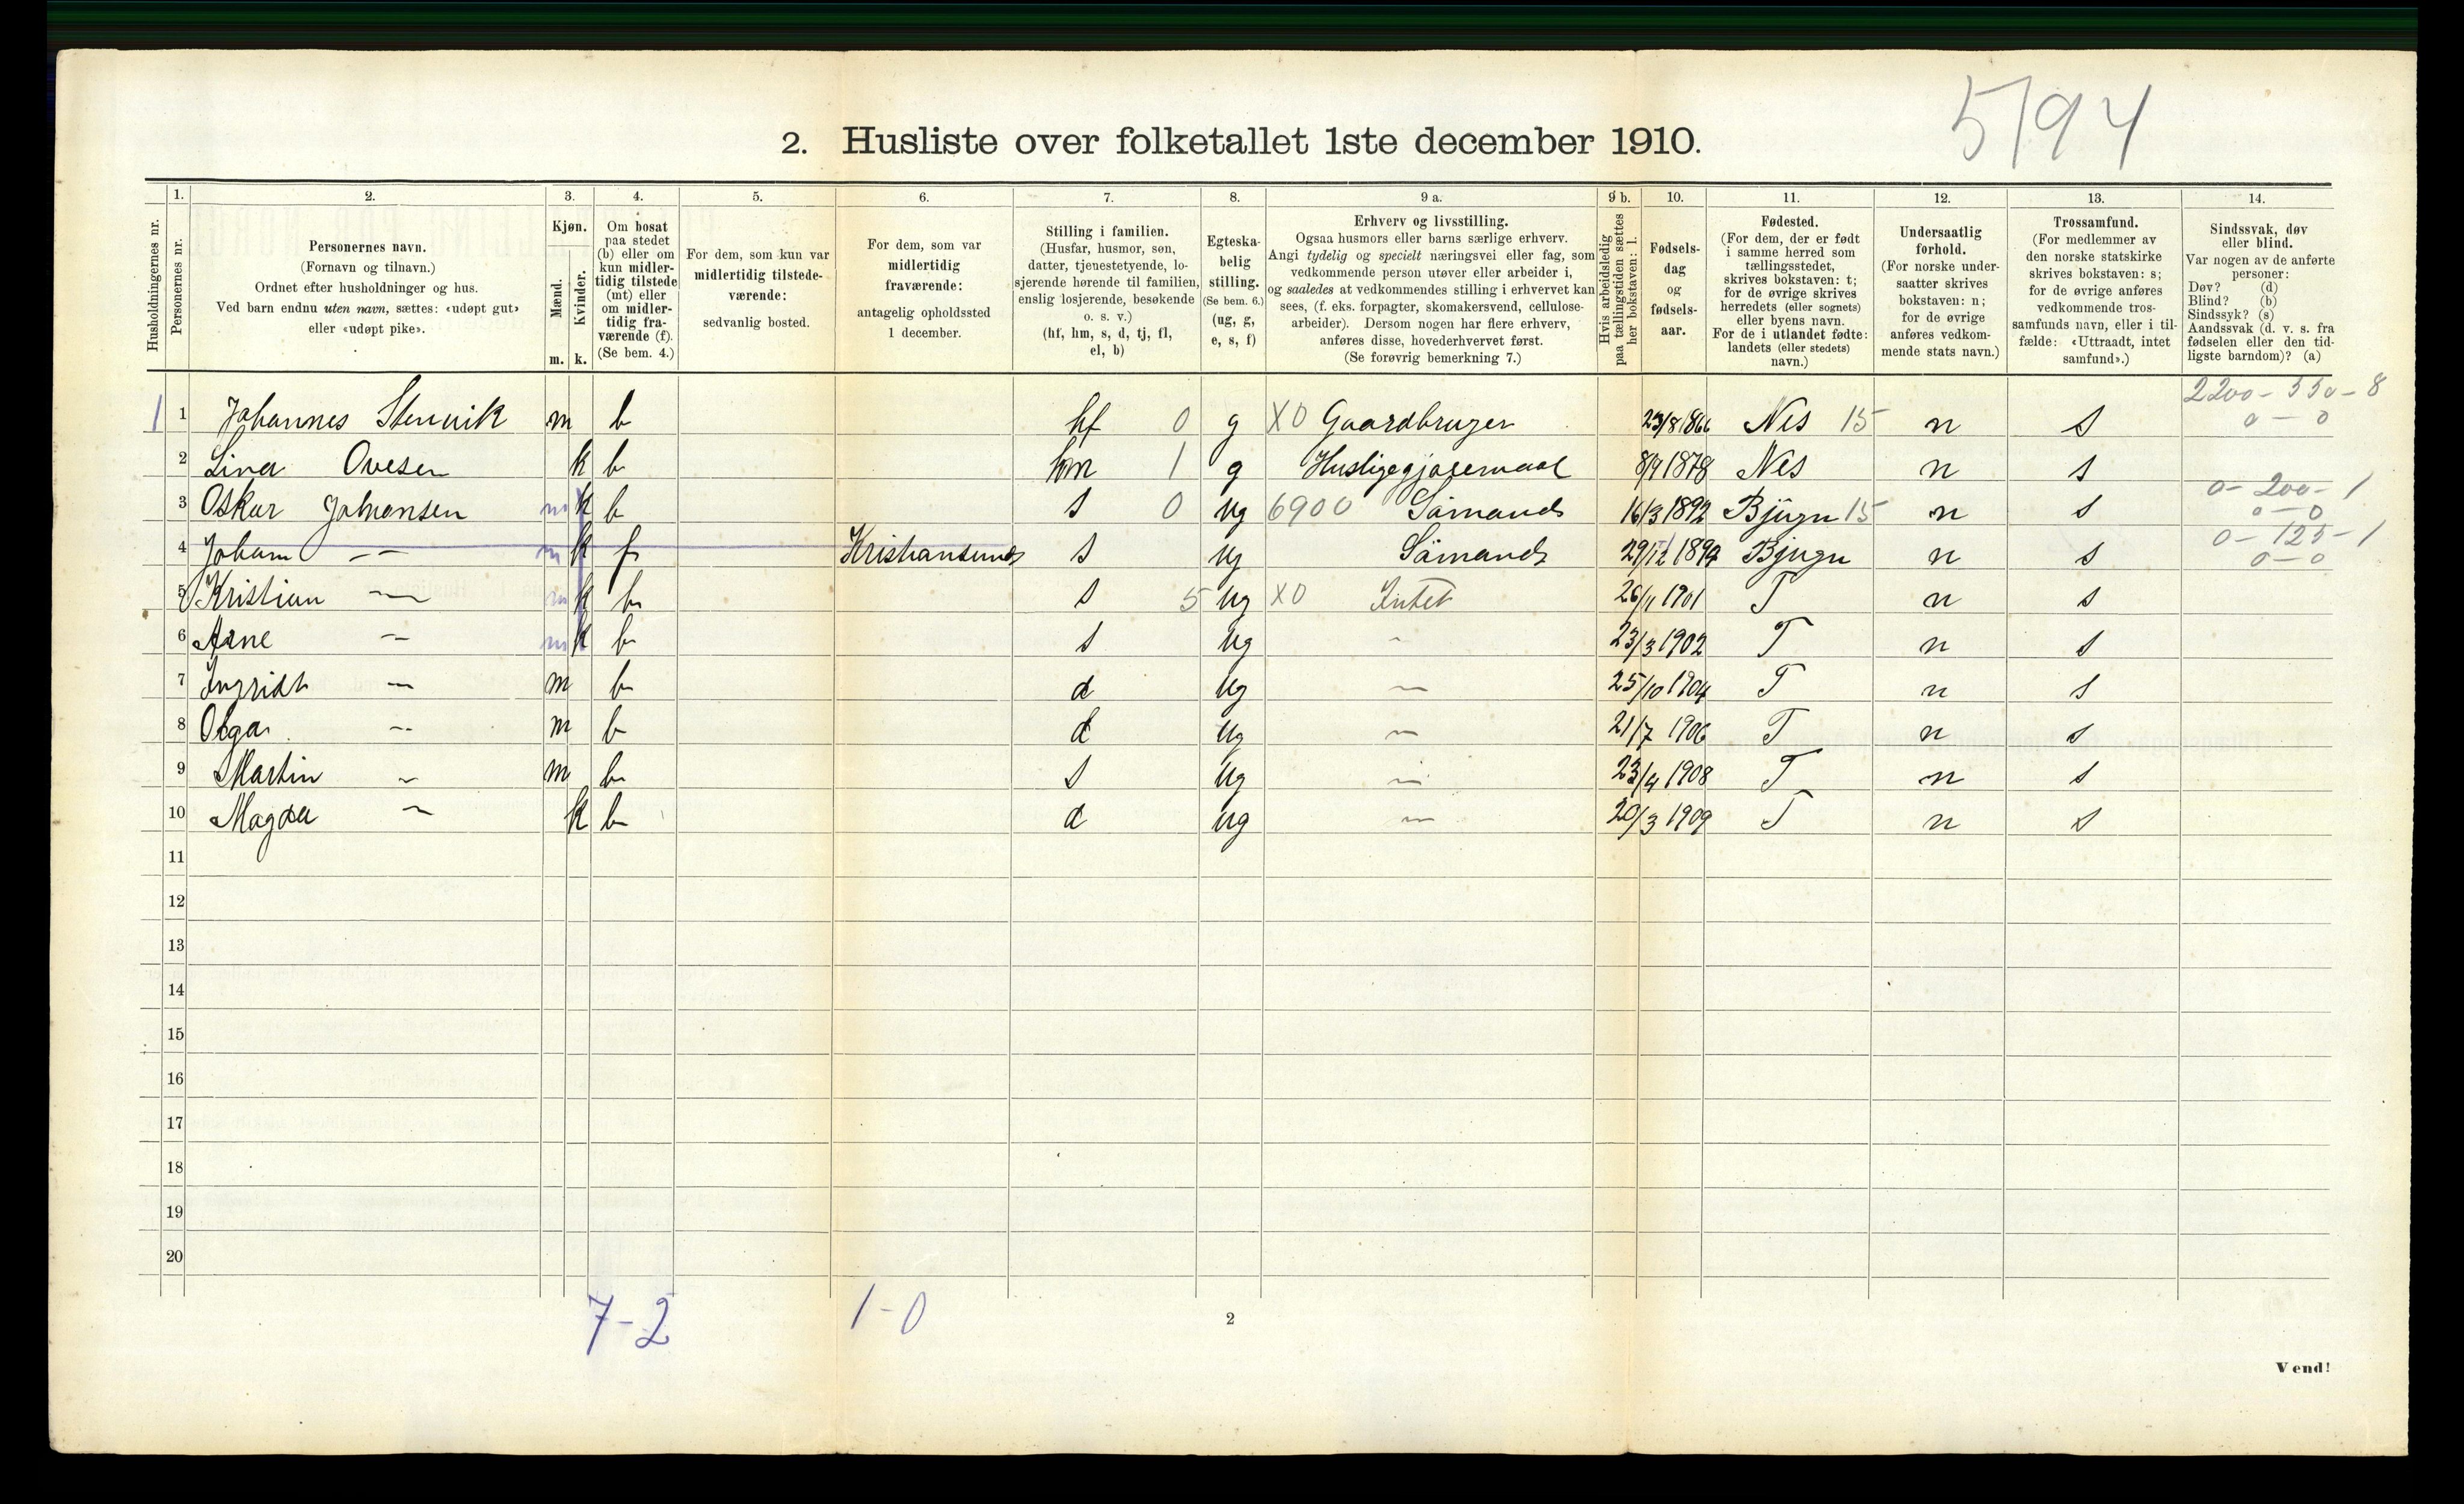 5794
2. Husliste over folketallet 1ste december 1910.
1. 2. 3. 4. 5. 6. 7. 8. 9 a. 9 b. 10. 11. 12. 13. 14.
Husholdningernes nr.
Personernes nr.
Personernes navn.
(Fornavn og tilnavn.)
Ordnet efter husholdninger og hus.
Ved barn endnu uten navn, sættes: «udøpt gut»
eller «udøpt pike».
Kjøn.
Mænd.
Kvinder.
m. k.
Om bosat
paa stedet
(b) eller om
kun midler-
tidig tilstede
(mt) eller
om midler-
tidig fra-
værende (f).
(Se bem. 4.)
For dem, som kun var
midlertidig tilstede-
værende:
sedvanlig bosted.
For dem, som var
midlertidig
fraværende:
antagelig opholdssted
1 december.
Stilling i familien.
(Husfar, husmor, søn,
datter, tjenestetyende, lo-
sjerende hørende til familien,
enslig losjerende, besøkende
o. s. v.)
(hf, hm, s, d, tj, fl,
el, b)
Egteska-
belig
stilling.
(Se bem. 6.)
(ug, g,
e, s, f)
Erhverv og livsstilling.
Ogsaa husmors eller barns særlige erhverv.
Angi tydelig og specielt næringsvei eller fag, som
vedkommende person utøver eller arbeider i,
og saaledes at vedkommendes stilling i erhvervet kan
sees, (f. eks. forpagter, skomakersvend, cellulose-
arbeider). Dersom nogen har flere erhverv,
anføres disse, hovederhvervet først.
(Se forøvrig bemerkning 7.)
Hvis arbeidsledig
paa tællingstiden sættes
her bokstaven: l.
Fødsels-
dag
og
fødsels-
aar.
Fødested.
(For dem, der er født
i samme herred som
tællingsstedet,
skrives bokstaven: t;
for de øvrige skrives
herredets (eller sognets)
eller byens navn.
For de i utlandet fødte:
landets (eller stedets)
navn.)
Undersaatlig
forhold.
(For norske under-
saatter skrives
bokstaven: n;
for de øvrige
anføres vedkom-
mende stats navn.)
Trossamfund.
(For medlemmer av
den norske statskirke
skrives bokstaven: s;
for de øvrige anføres
vedkommende tros-
samfunds navn, eller i til-
fælde: «Uttraadt, intet
samfund».)
Sindssvak, døv
eller blind.
Var nogen av de anførte
personer:
Døv? (d)
Blind? (b)
Sindssyk? (s)
Aandssvak (d. v. s. fra
fødselen eller den tid-
ligste barndom)? (a)
2200-550-8
1 1 Johannes Stenvik m b hf 0 g X0 Gaardbruger 23/8 1866 Nes 15 n s 0-0
2 Lina Ovesen k b hm 1 g Husligegjøremaal 8/9 1878 Nes n s
0-200-1
3 Oskar Johansen m k b s 0 ug 6900 Sömand 16/3 1892 Bjugn 15 n s 0-0
0-125-1
4 Johan -- m k f Kristiansund s ug Sömand 29/12 1894 Bjugn n s 0-0
5 Kristian - m k b s 5 ug X0 Intet 26/11 1901 T n s
6 Arne - m k b s ug - 23/3 1902 T n s
7 Ingrid - m b d ug - 25/10 1904 T n s
8 Olga - m b d ug - 21/7 1906 T n s
9 Martin - m b s ug - 23/4 1908 T n s
10 Magda - k b d ug - 20/3 1909 T n s
11
12
13
14
15
16
17
18
19
20
7-2 1-0
2
Vend!